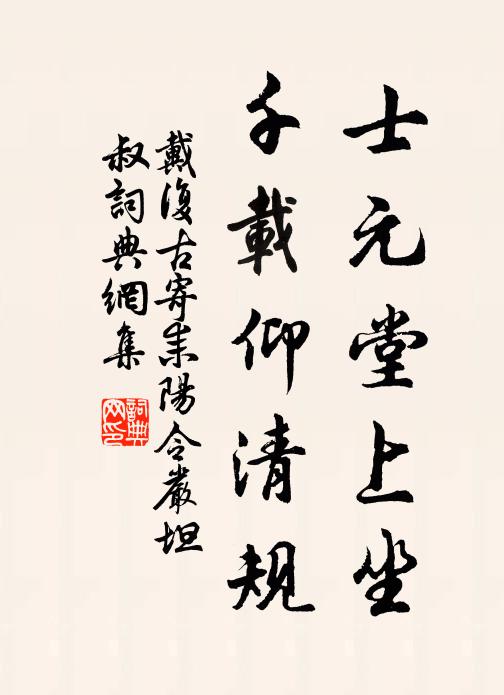 士元堂上坐
千載仰清規
戴復古寄耒陽令嚴坦
叔詞典網集
詞典網印